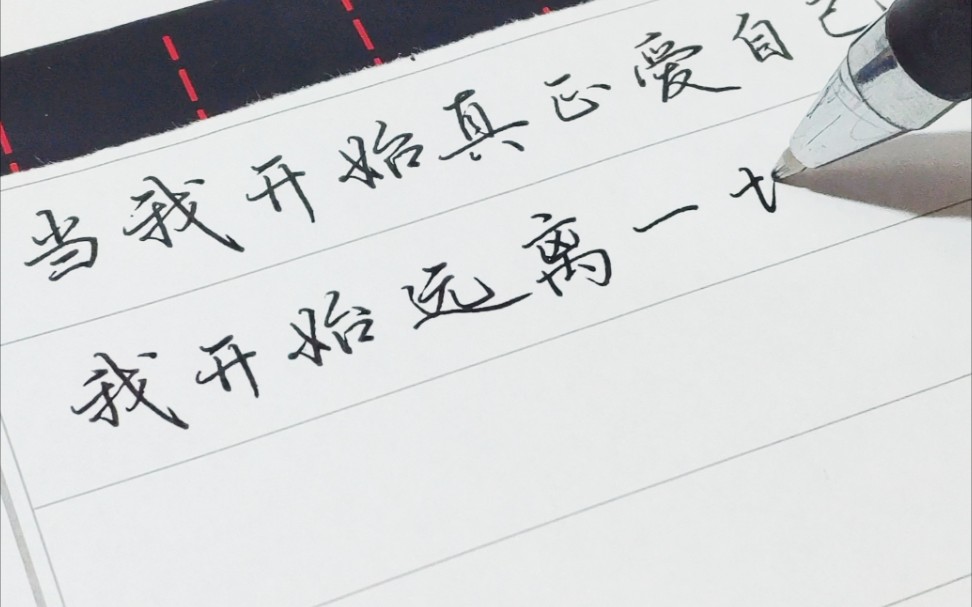 当我开始真正爱自己
我开始远离一